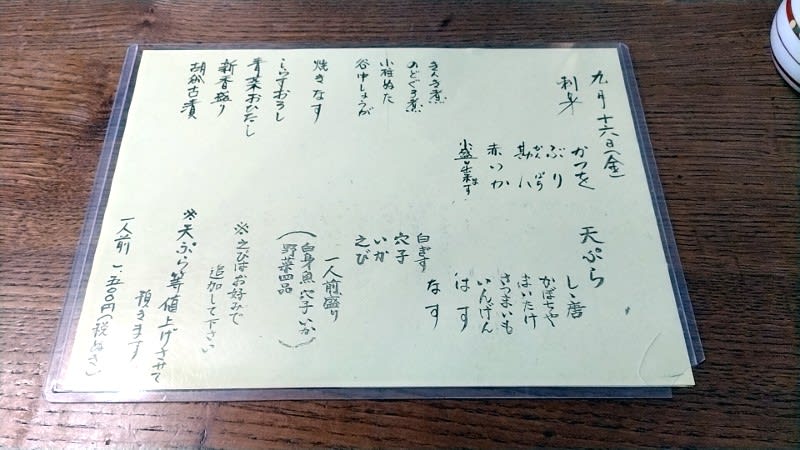 九月十六日(金)
刺身
かつを
ぶり
勘八
かんぱち
赤いか
小盛出来ます
きんき煮
のどぐろ煮
小柱ぬた
谷中しょうが
焼きなす
しらすおろし
青菜おひたし
新香盛り
胡瓜古漬
天ぷら
しゝ唐
かぼちゃ
まいたけ
さつまいも
いんげん
はす
なす
白きす
穴子
いか
えび
一人前盛り
(白身魚 穴子 いか
野菜四品)
※えびはお好みで
追加して下さい
※天ぷら等値上げさせて
頂きます
一人前 一五〇〇円(税ぬき)